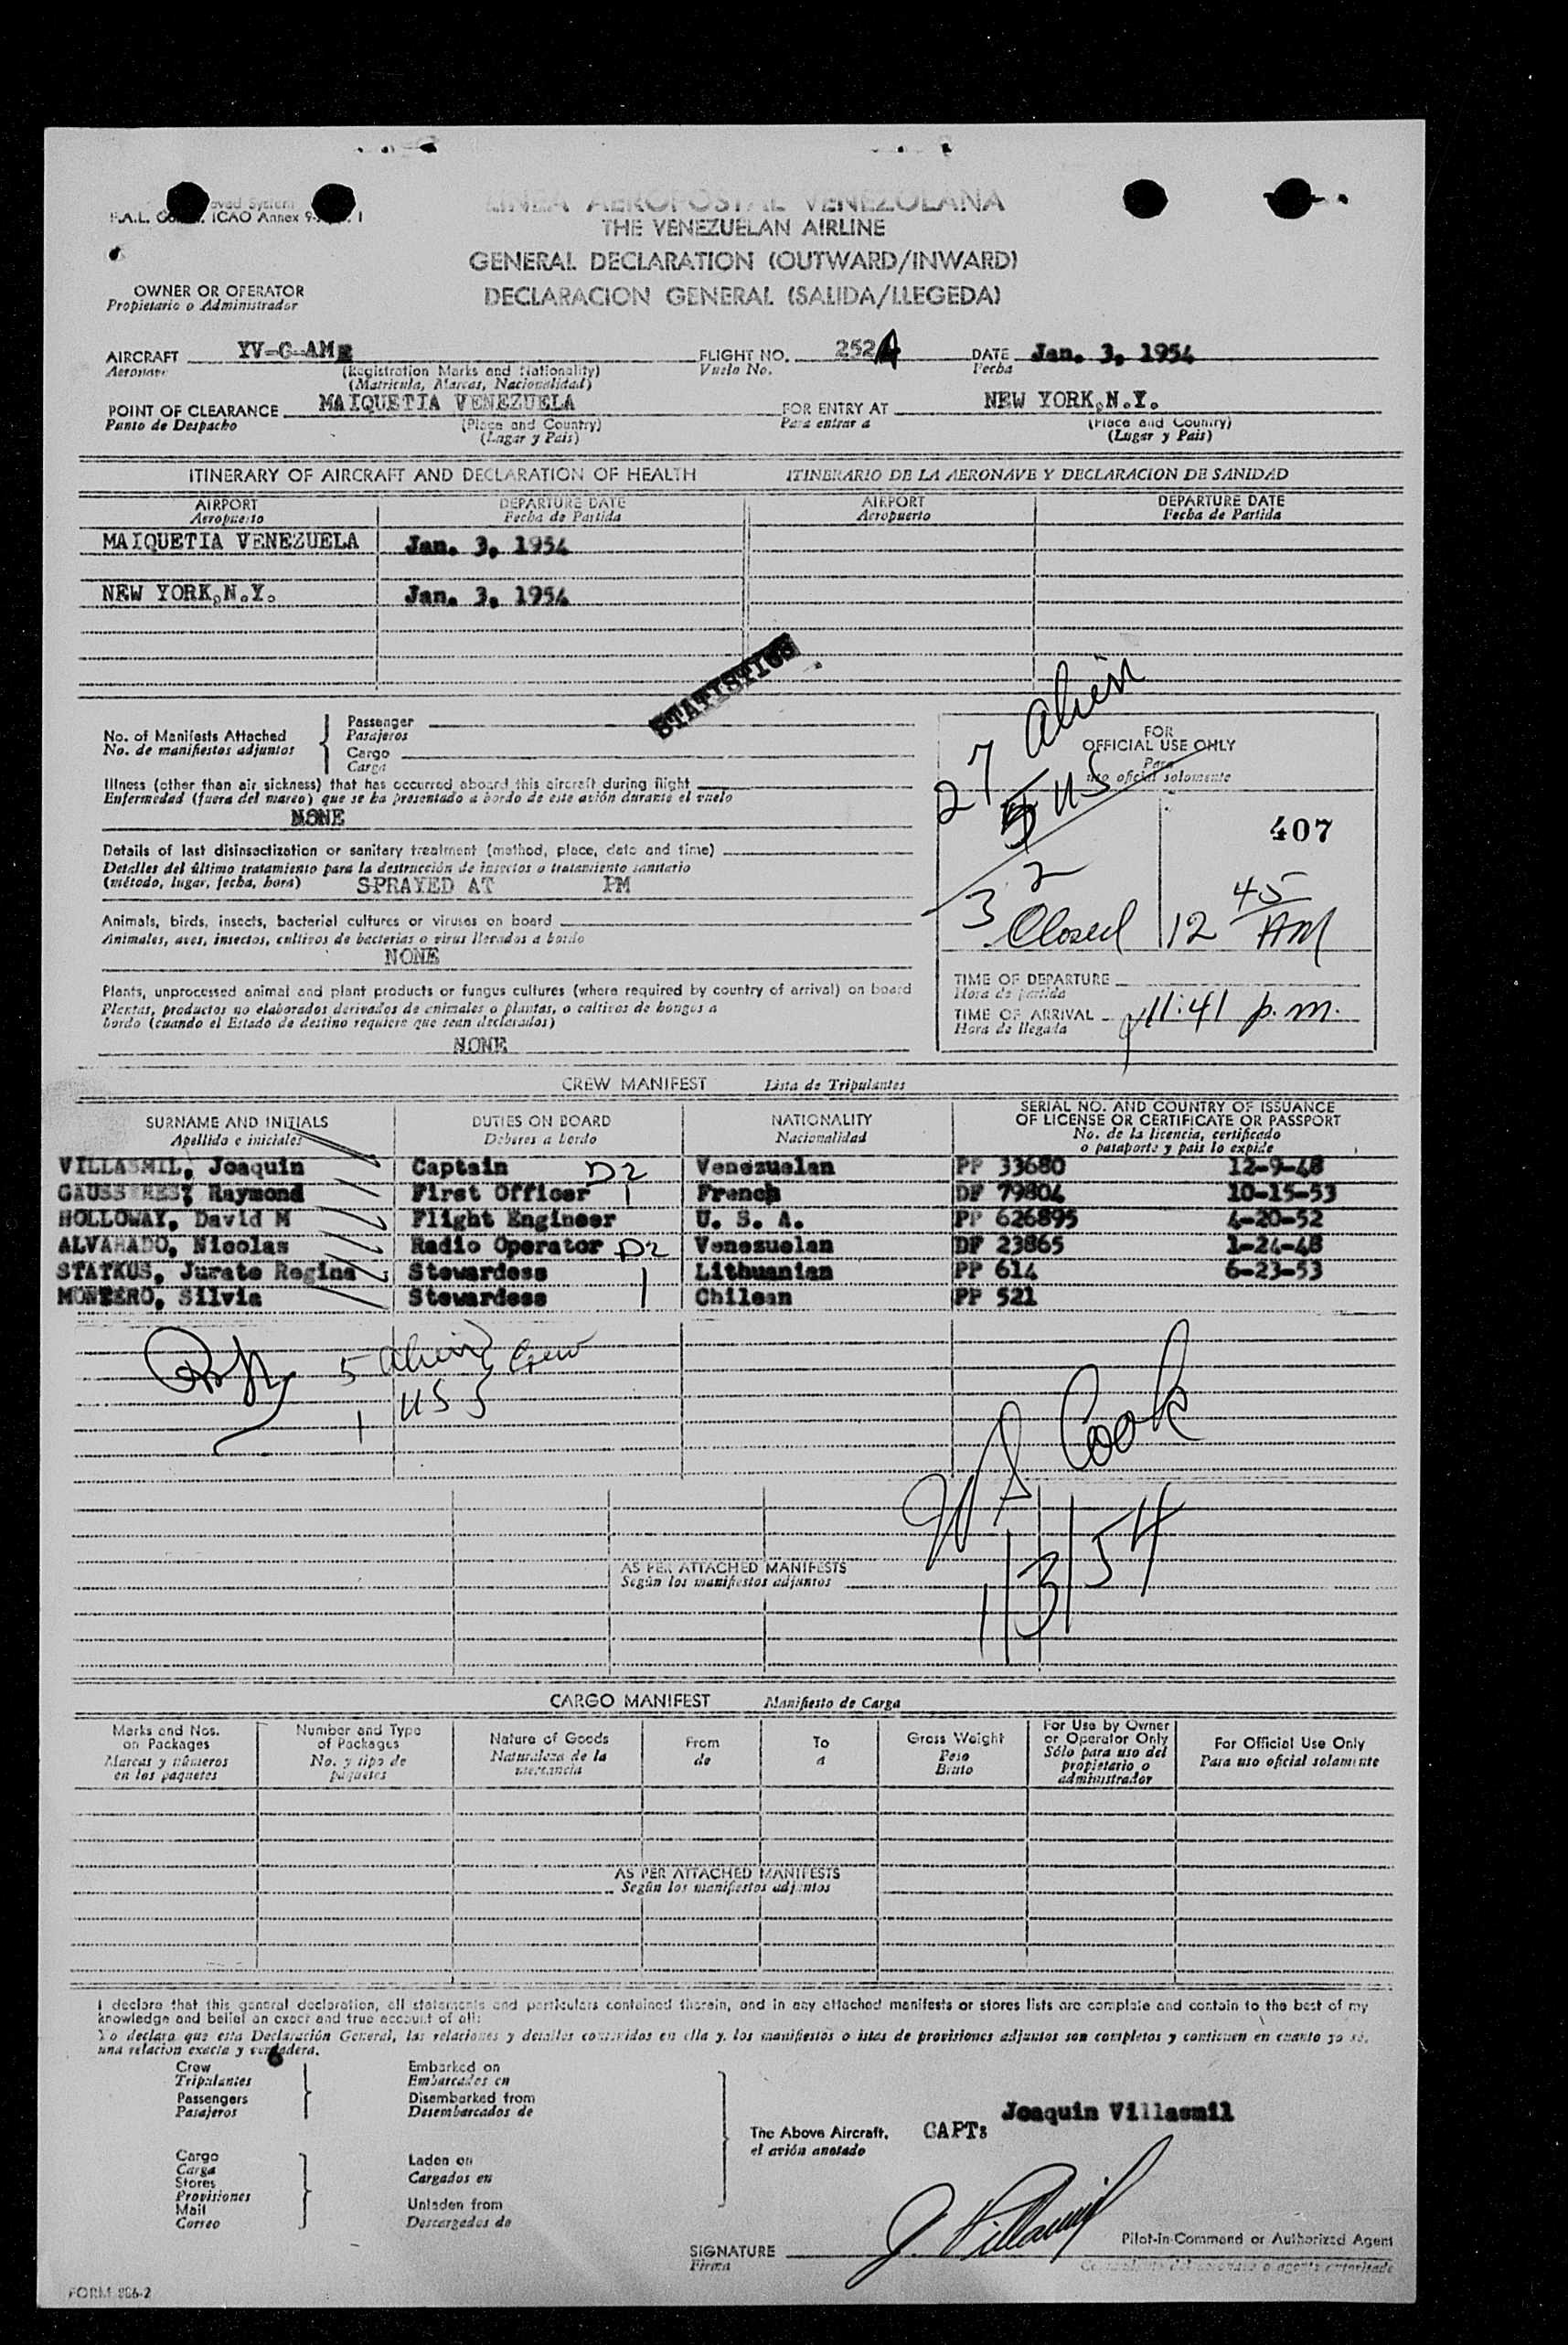 LINEA AEROPOSTAL VENEZOLANA
THE VENEZUELAN AIRLINE
GENERAL DECLARATION (OUTWARD/INWARD)
DECLARACION GENERAL (SALIDA/LLEGEDA)
F.A.L. ICAO Annex 9
OWNER OR OPERATOR
Propietario o Administrador
AIRCRAFT YV-C-AM FLIGHT NO. 252A DATE Jan. 3, 1954
Aeronave (Registration Marks and Nationality) Vuelo No. Fecha
(Matricula, Marcas, Nacionalidad)
POINT OF CLEARANCE MAIQUETIA VENEZUELA FOR ENTRY AT NEW YORK,N.Y.
Punto de Despacho (Place and Country) Para entrar a (Place and Country)
(Lugar y Pais) (Lugar y Pais)
ITINERARY OF AIRCRAFT AND DECLARATION OF HEALTH ITINERARIO DE LA AERONAVE Y DECLARACION DE SANIDAD
AIRPORT DEPARTURE DATE AIRPORT DEPARTURE DATE
Aeropuerto Fecha de Partida Aeropuerto Fecha de Partida
MAIQUETIA VENEZUELA Jan. 3, 1954
NEW YORK,N.Y. Jan. 3, 1954
STATISTICS
No. of Manifests Attached Passenger
No. de manifiestos adjuntos Pasajeros
Cargo
Carga
Illness (other than air sickness) that has occurred aboard this aircraft during flight
Enfermedad (fuera del mareo) que se ha presentado a bordo de este avión durante el vuelo
NONE
Details of last disinsectization or sanitary treatment (method, place, date and time)
Detalles del último tratamiento para la destrucción de insectos o tratamiento sanitario
(método, lugar, fecha, hora) SPRAYED AT PM
Animals, birds, insects, bacterial cultures or viruses on board
Animales, aves, insectos, cultivos de bacterias o virus llevados a bordo
NONE
Plants, unprocessed animal and plant products or fungus cultures (where required by country of arrival) on board
Plantas, productos no elaborados derivados de animales o plantas, o cultivos de hongos a
bordo (cuando el Estado de destino requiere que sean declarados)
NONE
27 alien
5 US
32
FOR
OFFICIAL USE ONLY
Para
uso oficial solamente
407
Closed 12 45 AM
TIME OF DEPARTURE
Hora de partida
TIME OF ARRIVAL 11:41 p.m.
Hora de llegada
CREW MANIFEST Lista de Tripulantes
SURNAME AND INITIALS DUTIES ON BOARD NATIONALITY SERIAL NO. AND COUNTRY OF ISSUANCE
Apellido e iniciales Deberes a bordo Nacionalidad OF LICENSE OR CERTIFICATE OR PASSPORT
No. de la licencia, certificado
o pasaporte y pais lo expide
VILLASMIL, Joaquin Captain D2 Venezuelan PP 33680 12-9-48
Raymond First Officer 1 French DF 79804 10-15-53
HOLLOWAY, David M Flight Engineer U. S. A. PP 626895 4-20-52
ALVARADO, Nicolas Radio Operator D2 Venezuelan DF 23865 1-24-48
STATKUS, Jurate Regina Stewardess 1 Lithuanian PP 614 6-23-53
MONTERO, Silvia Stewardess Chilean PP 521
5 alien } Crew
1 US
W S Cook
1/3/54
AS PER ATTACHED MANIFESTS
Según los manifiestos adjuntos
CARGO MANIFEST Manifiesto de Carga
Marks and Nos. on Packages Number and Type of Packages Nature of Goods From To Gross Weight For Use by Owner or Operator Only For Official Use Only
Marcas y números en los paquetes No. y tipo de paquetes Naturaleza de la mercancia de a Peso Bruto Sólo para uso del propietario o administrador Para uso oficial solamente
AS PER ATTACHED MANIFESTS
Según los manifiestos adjuntos
I declare that this general declaration, all statements and particulars contained therein, and in any attached manifests or stores lists are complete and contain to the best of my
knowledge and belief an exact and true account of all:
Yo declaro que esta Declaración General, las relaciones y detalles contenidos en ella y, los manifiestos o istas de provisiones adjuntos son completos y contienen en cuanto yo sé,
una relacion exacta y verdadera.
6
Crew Embarked on
Tripulantes Embarcados en
Passengers Disembarked from
Pasajeros Desembarcados de
The Above Aircraft. CAPT: Joaquin Villasmil
el avión anotado
Cargo Laden on
Carga Cargados en
Stores
Provisiones
Mail Unladen from
Correo Descargados de
SIGNATURE J. Villasmil Pilot-in-Command or Authorized Agent
Firma
FORM 886-2